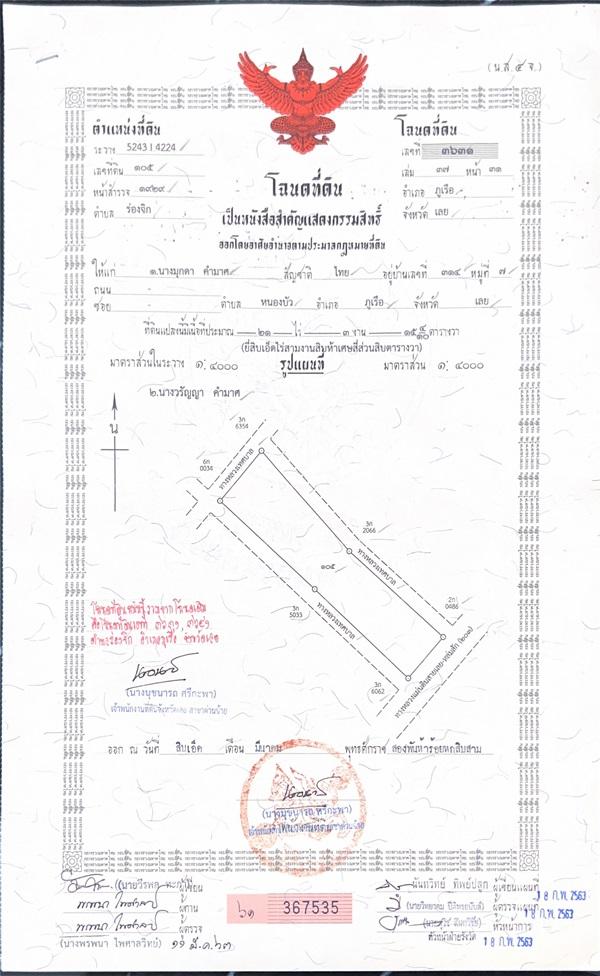 (น.ส. ๔ จ.)
ตำแหน่งที่ดิน
ระวาง 5243 I 4224
เลขที่ดิน ๑๐๕
หน้าสำรวจ ๑๙๒๙
ตำบล ร่องจิก
โฉนดที่ดิน
เลขที่ ๓๖๓๑
เล่ม ๓๗ หน้า ๓๑
อำเภอ ภูเรือ
จังหวัด เลย
โฉนดที่ดิน
เป็นหนังสือสำคัญแสดงกรรมสิทธิ์
ออกโดยอาศัยอำนาจตามประมวลกฎหมายที่ดิน
ให้แก่ ๑.นางมุกดา คำมาศ สัญชาติ ไทย อยู่บ้านเลขที่ ๓๑๔ หมู่ที่ ๗
ถนน -
ซอย - ตำบล หนองบัว อำเภอ ภูเรือ จังหวัด เลย
ที่ดินแปลงนี้มีเนื้อที่ประมาณ ๒๑ ไร่ ๓ งาน ๑๕ ๔/๑๐ ตารางวา
(ยี่สิบเอ็ดไร่สามงานสิบห้าเศษสี่ส่วนสิบตารางวา)
มาตราส่วนในระวาง ๑: ๔๐๐๐ รูปแผนที่ มาตราส่วน ๑: ๔๐๐๐
๒.นางวรัญญา คำมาศ
น
3ก
6354
6ก
0034
ทางหลวงเทศบาล
3ก
2066
ทางหลวงเทศบาล
๑๐๕
2ก
0486
3ก
5033
ทางหลวงเทศบาล
3ก
6062
ทางหลวงแผ่นดินสายเลย-หล่มสัก (๒๐๓)
(นางนุชนารถ ศรีกะพา)
เจ้าพนักงานที่ดินจังหวัดเลย สาขาด่านซ้าย
ออก ณ วันที่ สิบเอ็ด เดือน มีนาคม พุทธศักราช สองพันห้าร้อยหกสิบสาม
(นางนุชนารถ ศรีกะพา)
ผู้เขียน
ผู้ทาน
ผู้ตรวจ
(นางพรพนา ไพศาลวิทย์) ๑๑ มี.ค.๖๓
๖๑ 367535
ผู้เขียนแผนที่ 18 ก.พ. 2563
ผู้ตรวจแผนที่ 18 ก.พ. 2563
หัวหน้าการ
หัวหน้าฝ่ายรังวัด 18 ก.พ. 2563